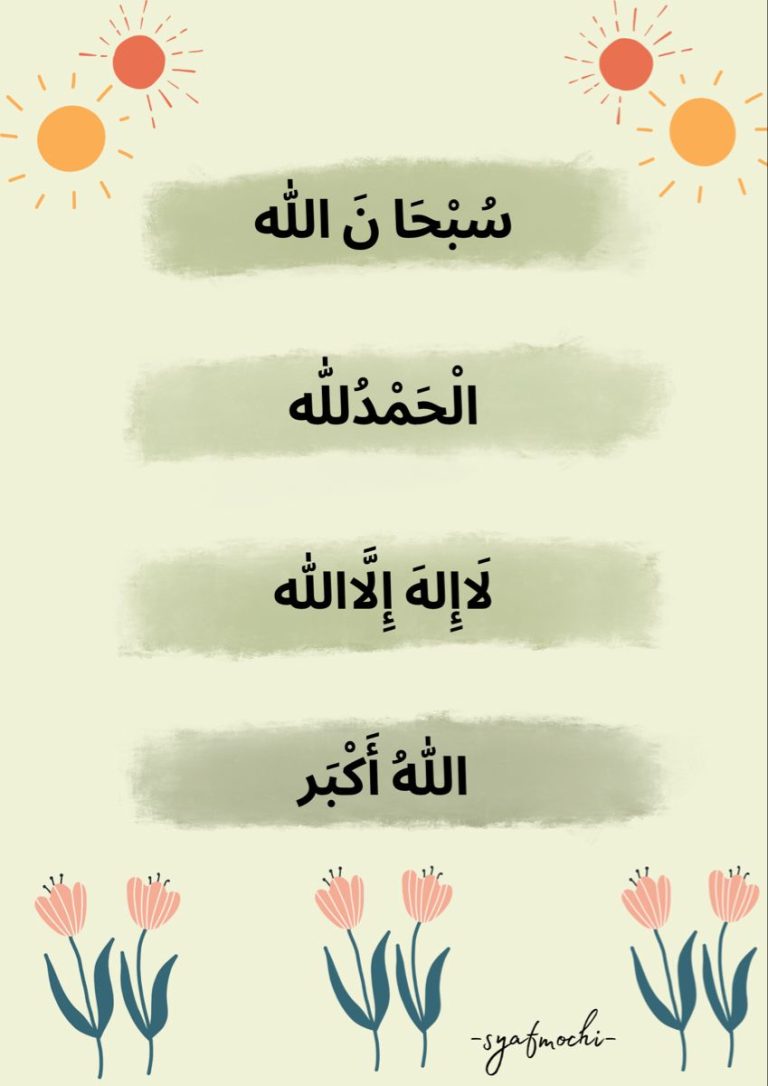 سُبْحَا نَ اللّٰه
الْحَمْدُللّٰه
لَاإِلهَ إِلَّااللّٰه
اللّٰهُ أَكْبَر
-syafmochi-